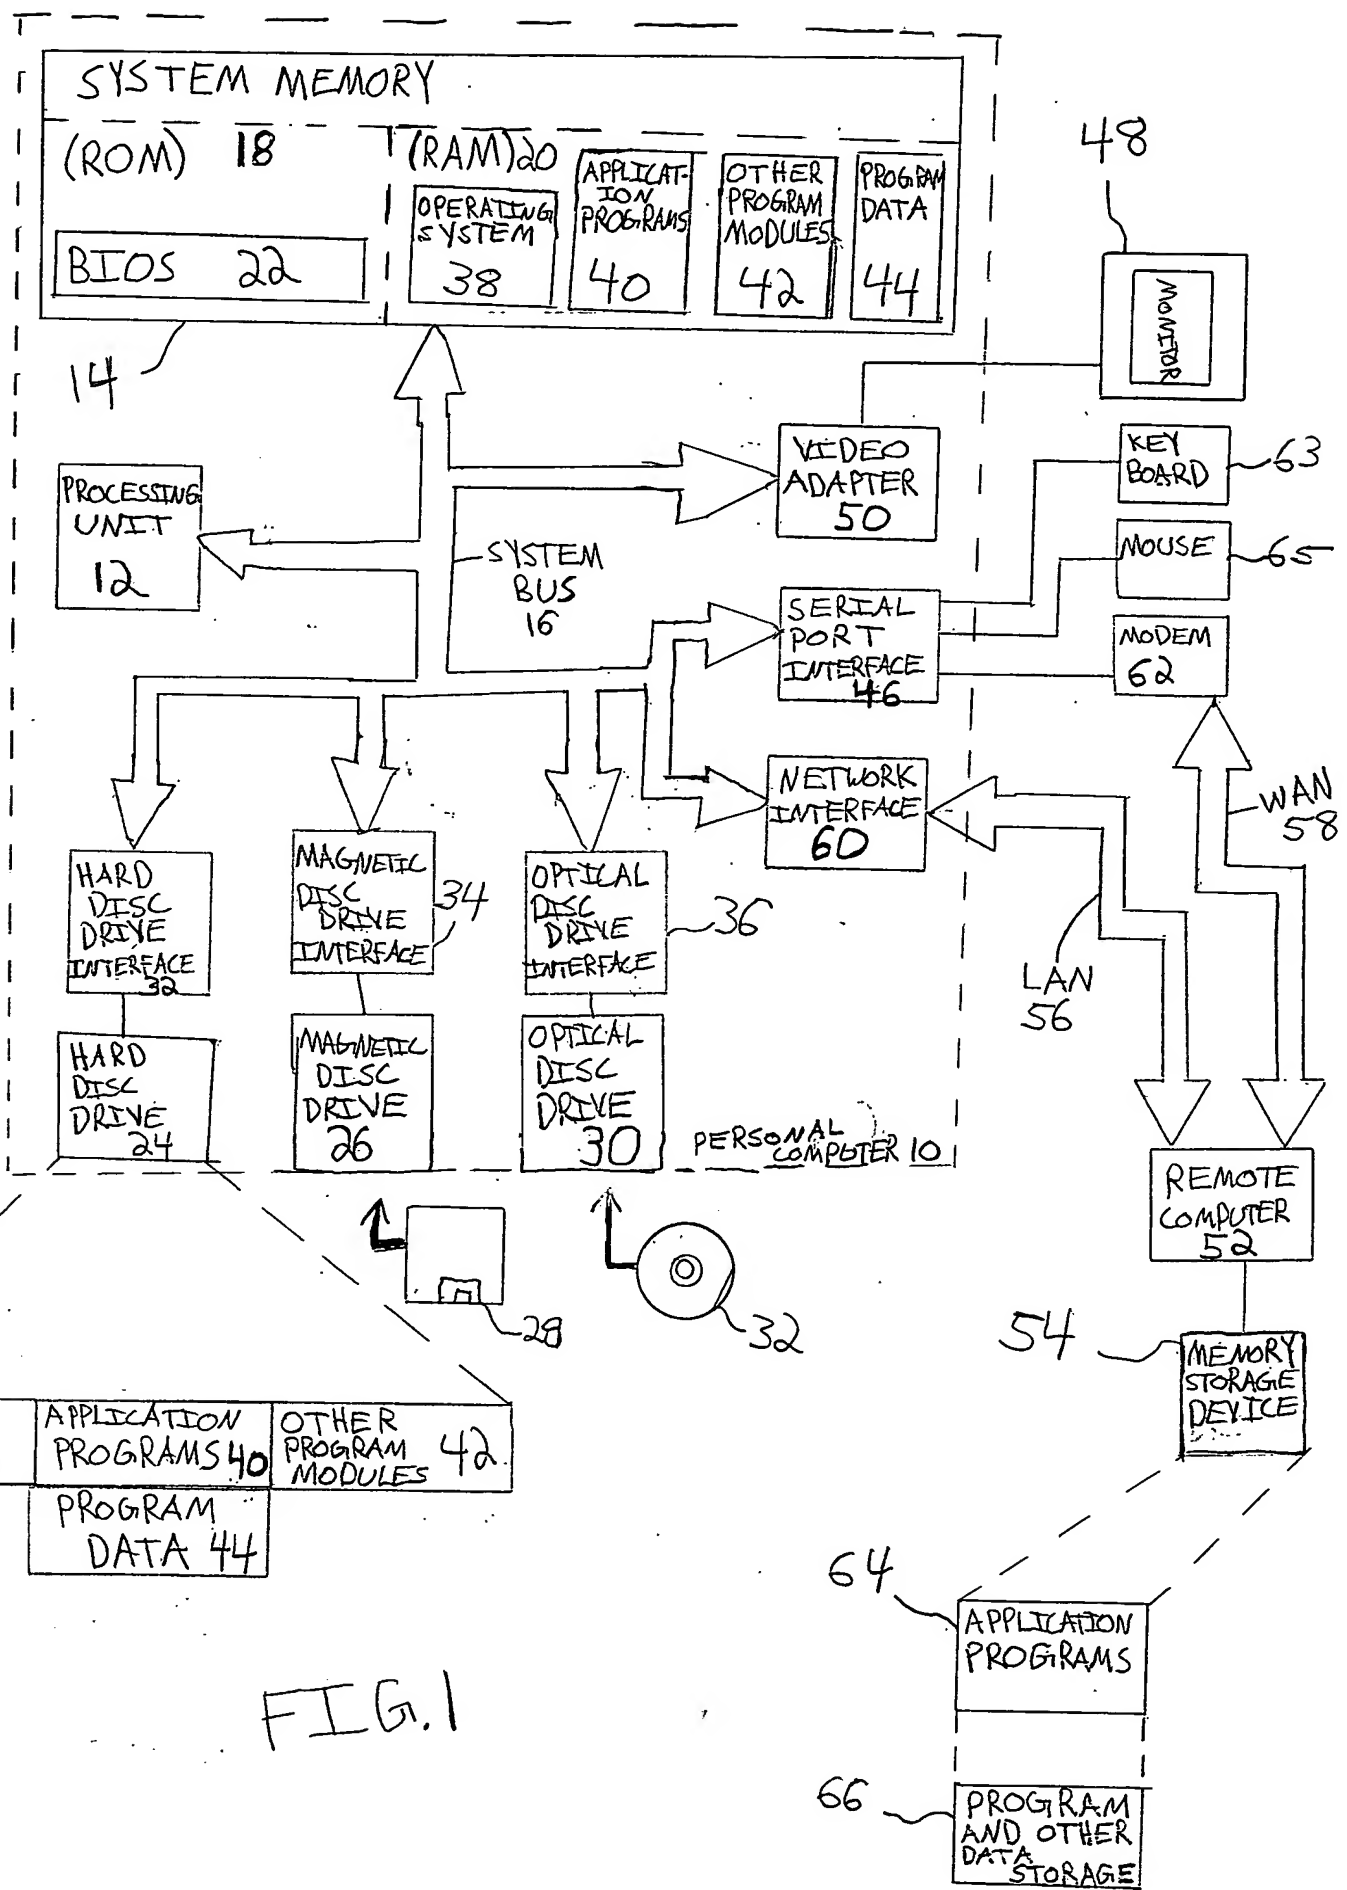 SYSTEM MEMORY
(ROM) 18
(RAM) 20
BIOS 22
OPERATING
SYSTEM
38
APPLICAT-
ION
PROGRAMS
40
OTHER
PROGRAM
MODULES
42
PROGRAM
DATA
44
14
48
MONITOR
PROCESSING
UNIT
12
VIDEO
ADAPTER
50
KEY
BOARD
63
MOUSE
65
SYSTEM
BUS
16
SERIAL
PORT
INTERFACE
46
MODEM
62
NETWORK
INTERFACE
60
WAN
58
HARD
DISC
DRIVE
INTERFACE
32
MAGNETIC
DISC
DRIVE
INTERFACE
34
OPTICAL
DISC
DRIVE
INTERFACE
36
LAN
56
HARD
DISC
DRIVE
24
MAGNETIC
DISC
DRIVE
26
OPTICAL
DISC
DRIVE
30
PERSONAL
COMPUTER 10
REMOTE
COMPUTER
52
28
32
54
MEMORY
STORAGE
DEVICE
APPLICATION
PROGRAMS 40
OTHER
PROGRAM
MODULES
42
PROGRAM
DATA 44
64
APPLICATION
PROGRAMS
66
PROGRAM
AND OTHER
DATA
STORAGE
FIG. 1